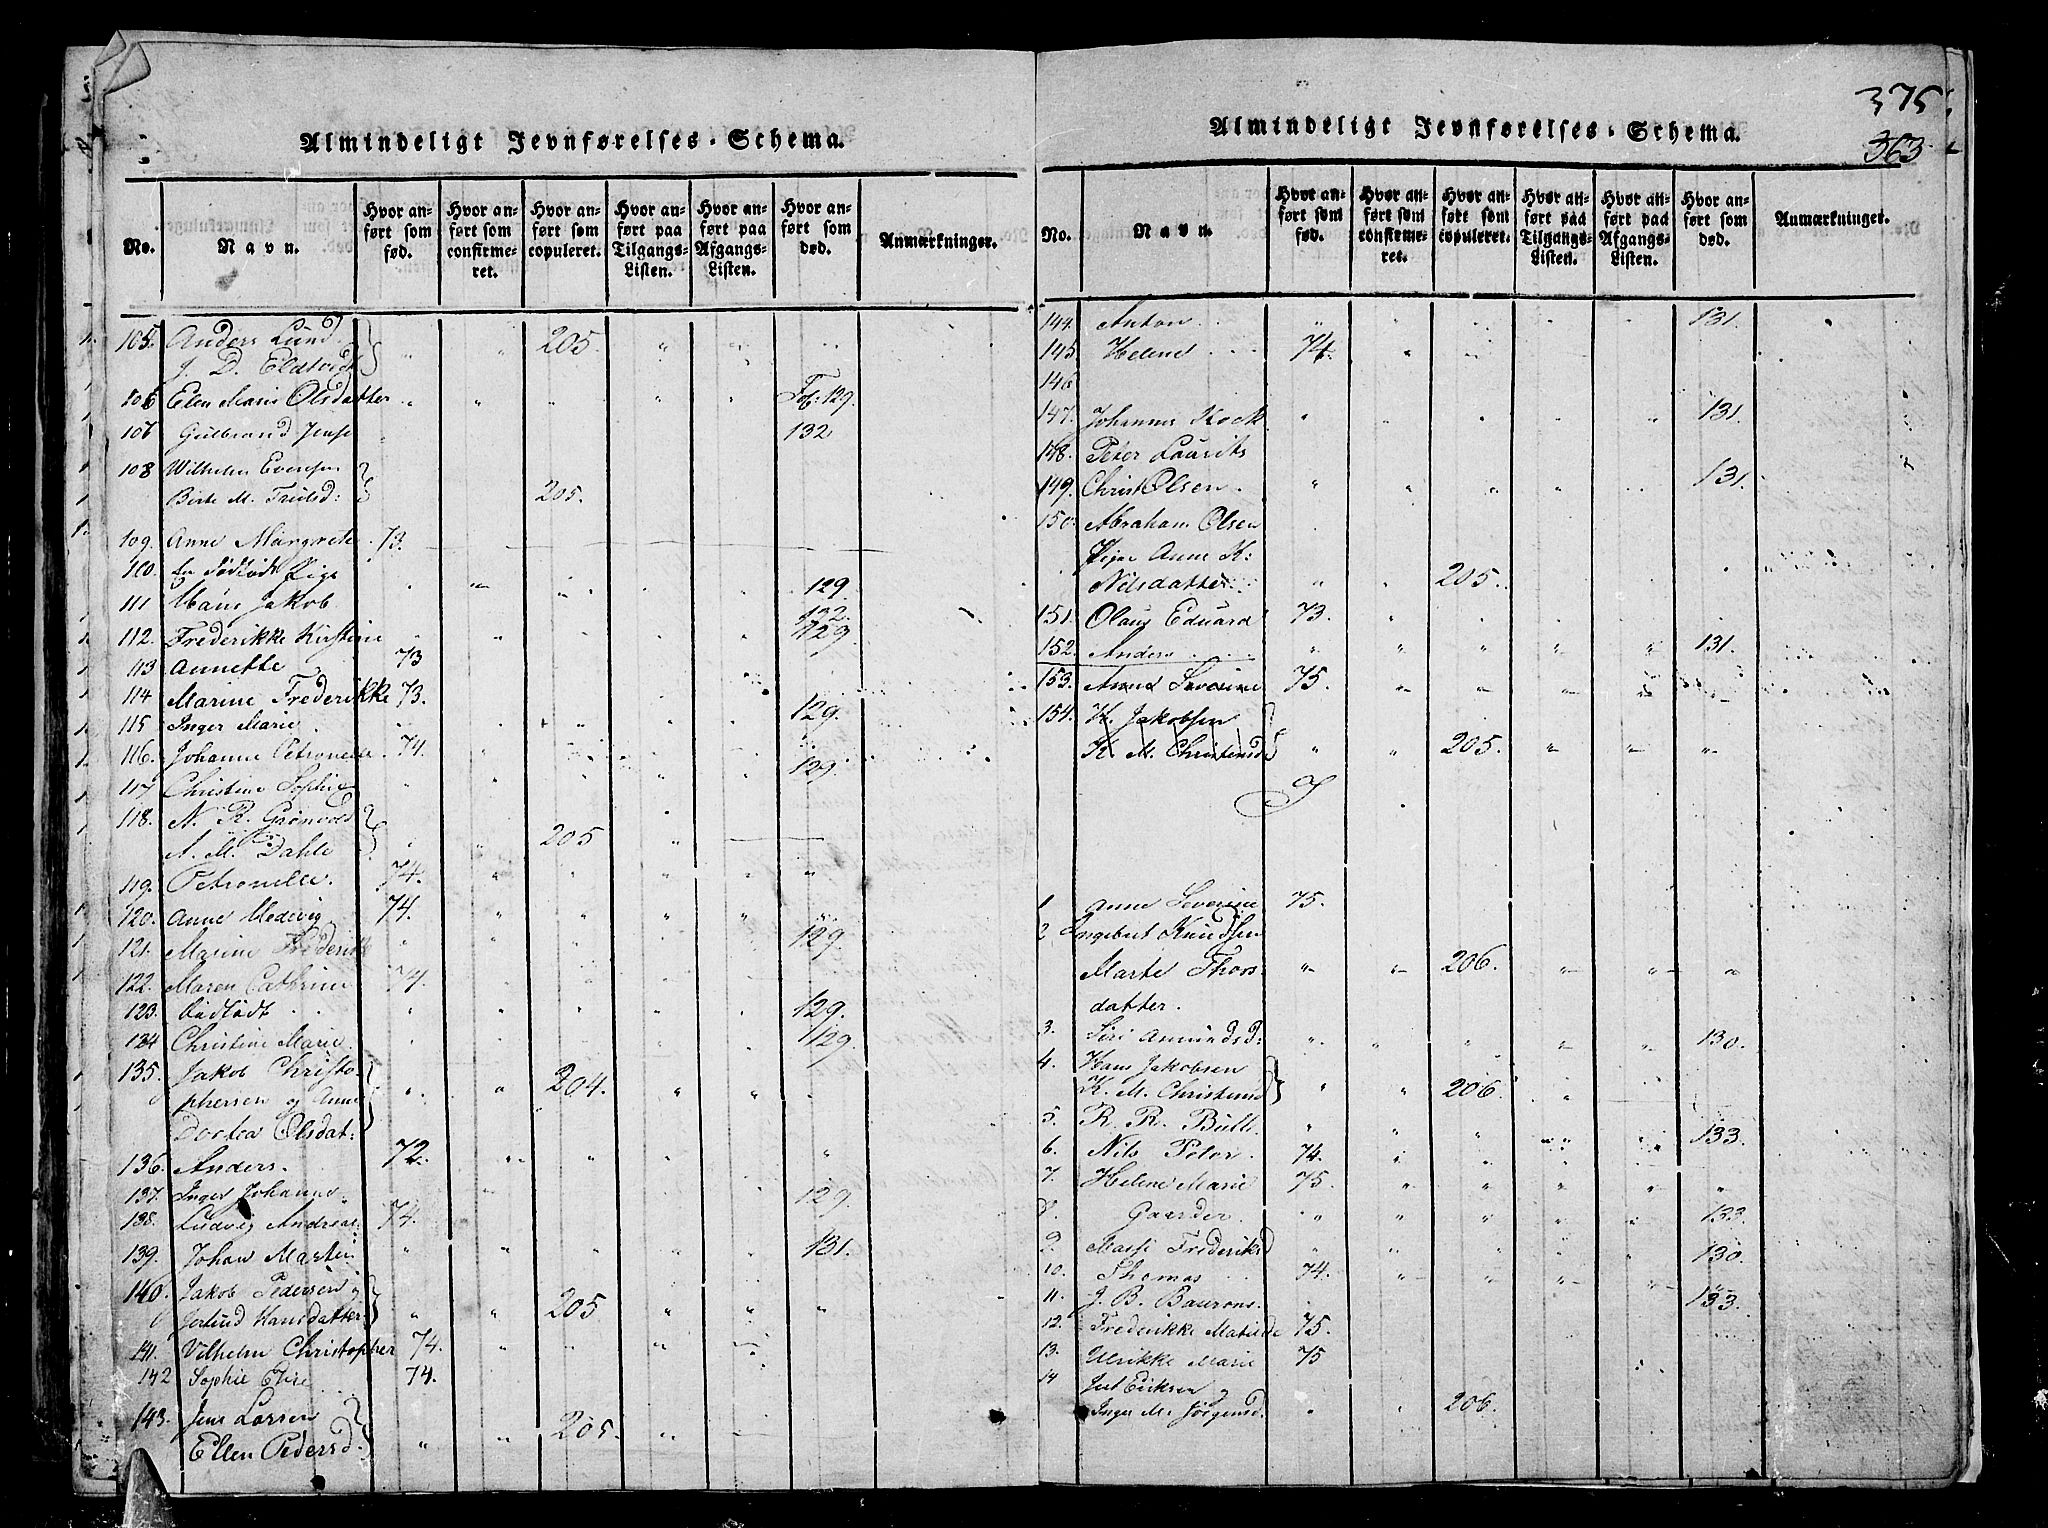 Almindeligt Jevnførelses-Schema.
No. Navn. Hvor anført som fød. Hvor anført som confirmeret. Hvor anført som copuleret. Hvor anført paa Tilgangs-Listen. Hvor anført paa Afgangs-Listen. Hvor anført som død. Anmærkninger.
105. Anders Lund
J. D. Eldtvedt 205.
106 Elen Marie Olsdatter Fol. 129.
107 Gulbrand Jense 132
108 Wilhelm Evensen
Birte M. Trulsd: 205.
109. Anne Margrete 73.
110. En dødfødt Pige 129.
111 Hans Jakob 132.
112. Frederikke Kirstine 129.
113 Annette 73
114 Marine Frederikke 73.
115 Inger Marie 129.
116. Johanne Petronelle 74.
117 Christine Sophie 129.
118. N. R. Grønvold
A. M. Dahle 205
119. Petronelle. 74.
120. Anne Hedevig 74.
121. Marine Frederik 129.
122. Maren Cathrine 74.
123. Dødfødt 129.
134 Christine Marie 129.
135. Jakob Christo-
phersen og Anne 204.
Dortea Olsdat:
136. Anders. 72.
137. Inger Johanne 129.
138. Ludvig Andreas 74.
139. Johan Martin 131.
140. Jakob Pedersen og
Jertrud Hansdatter 205
141. Vilhelm Christopher 74.
142 Sophie 74.
143. Jens Larsen
Ellen Pedersd. 205.
375
363
Almindeligt Jevnførelses-Schema.
No. Navn. Hvor anført som fød. Hvor anført som confirmeret. Hvor anført som copuleret. Hvor anført paa Tilgangs-Listen. Hvor anført paa Afgangs-Listen. Hvor anført som død. Anmærkninger.
144. Anton 131.
145 Helene 74.
146
147. Johannes Kock 131.
148. Peter Laurits
149. Christ Olsen. 131.
150. Abraham Olsen
Pige Anne K:
Nilsdatter 205.
151. Olaus Eduard 73.
152. Anders 131.
153. Anne Severine 75.
154. H. Jakobsen
K. M. Christensd 205.
1 Anne Severine 75.
2 Ingebret Knudsen
Marte Thors- 206.
datter.
3. Siri Amundsd: 130.
4. Hans Jakobsen
K. M. Christensd 206.
5. R. R. Bull 133.
6. Nils Peter. 74.
7. Helene Marie 75.
8. Gaarder. 133.
9. Massi Frederiksd 130.
10. Thomas 74.
11. J. B. Baurons. 133.
12. Frederikke Matilde 75.
13. Ulrikke Marie 75
14 Juel Eriksen og
Inger M. Jørgensd. 206.